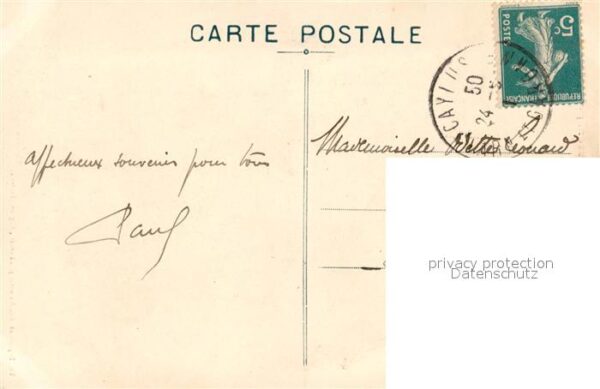 CARTE POSTALE
5c
POSTES
REPUBLIQUE FRANÇAISE
CAYLUS
50
24
affectueux souvenir pour tous
Paul
Mademoiselle
privacy protection
Datenschutz